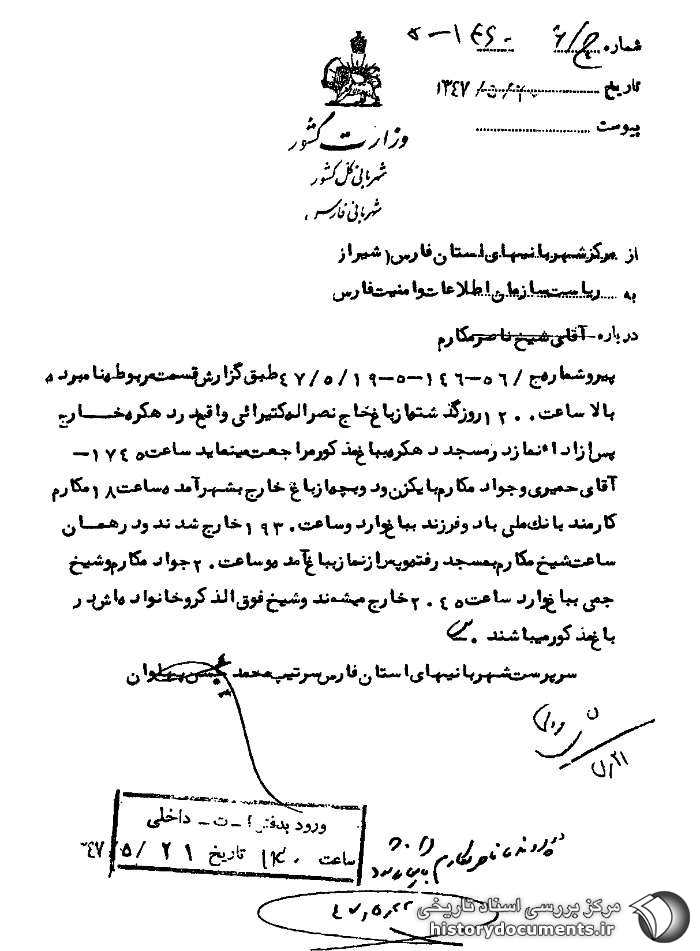 شماره ۶/ج
تاریخ ۱۳۴۷/۵/
پیوست
وزارت کشور
شهربانی کل کشور
شهربانی فارس
از مرکز شهربانیهای استان فارس (شیراز
به ریاست سازمان اطلاعات و امنیت فارس
درباره آقای شیخ ناصر مکارم
پیرو شماره ج /۵۶-۱۴۶-۵-۴۷/۵/۱۹ طبق گزارش قسمت مربوطه نامبرده
بالا ساعت ۱۲۰۰ روز گذشته از باغ حاج نصراله کتیرائی واقع در دهکره خارج
پس از اداء نماز در مسجد دهکره بباغ مذکور مراجعت مینماید ساعت ۱۷۴۵-
آقای حمیری و جواد مکارم با یکزن و دو بچه از باغ خارج بشهر آمده ساعت ۱۸ مکارم
کارمند بانک ملی با دو فرزند بباغ وارد و ساعت ۱۹۳۰ خارج شدند و در همان
ساعت شیخ مکارم بمسجد رفته و پس از نماز بباغ آمده و ساعت ۲۰ جواد مکارم و شیخ
جمی بباغ وارد ساعت ۲۰۴۵ خارج میشوند و شیخ فوق الذکر و خانواده اش در
باغ مذکور میباشند .
سرپرست شهربانیهای استان فارس سرتیپ محمد حسن پهلوان
ورود بدفتر ا - ت - داخلی
ساعت تاریخ ۴۷/۵/۲۱
در پرونده ناصر مکارم بایگانی شود
۴۷/۵/۲۲
مرکز بررسی اسناد تاریخی
historydocuments.ir